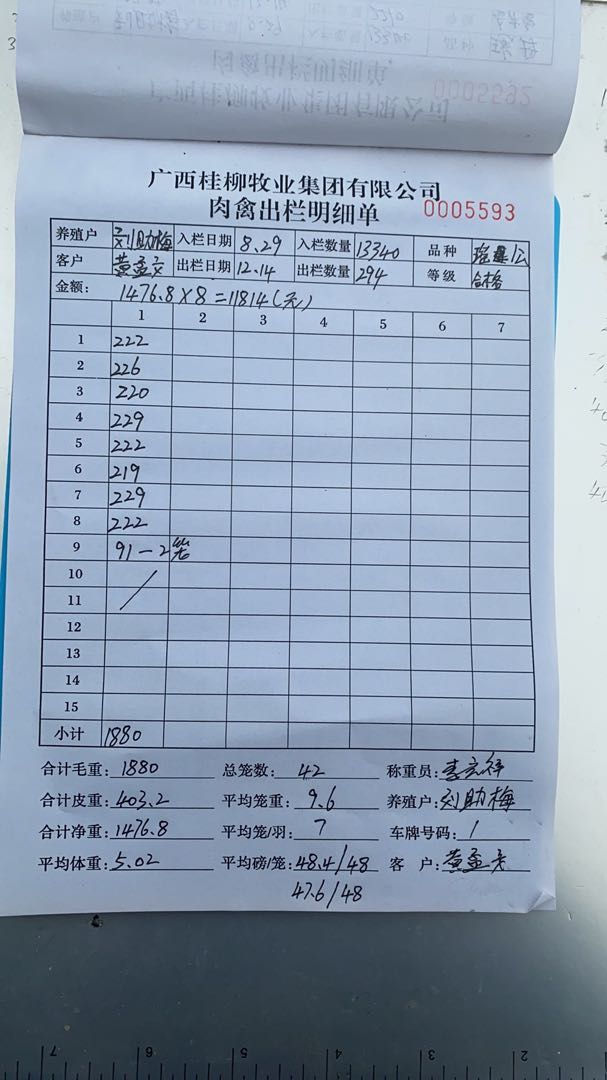 0005592
广西桂柳牧业集团有限公司
肉禽出栏明细单 0005593
养殖户 刘助梅 入栏日期 8.29 入栏数量 13340 品种
客户 黄孟文 出栏日期 12.14 出栏数量 294 等级 合格
金额: 1476.8×8=11814(元)
1 2 3 4 5 6 7
1 222
2 226
3 220
4 229
5 222
6 219
7 229
8 222
9 91-2笼
10
11
12
13
14
15
小计 1880
合计毛重: 1880 总笼数: 42 称重员:
合计皮重: 403.2 平均笼重: 9.6 养殖户: 刘助梅
合计净重: 1476.8 平均笼/羽: 7 车牌号码: /
平均体重: 5.02 平均磅/笼: 48.4/48 客 户: 黄孟文
47.6/48
7 6 5 4 3 2